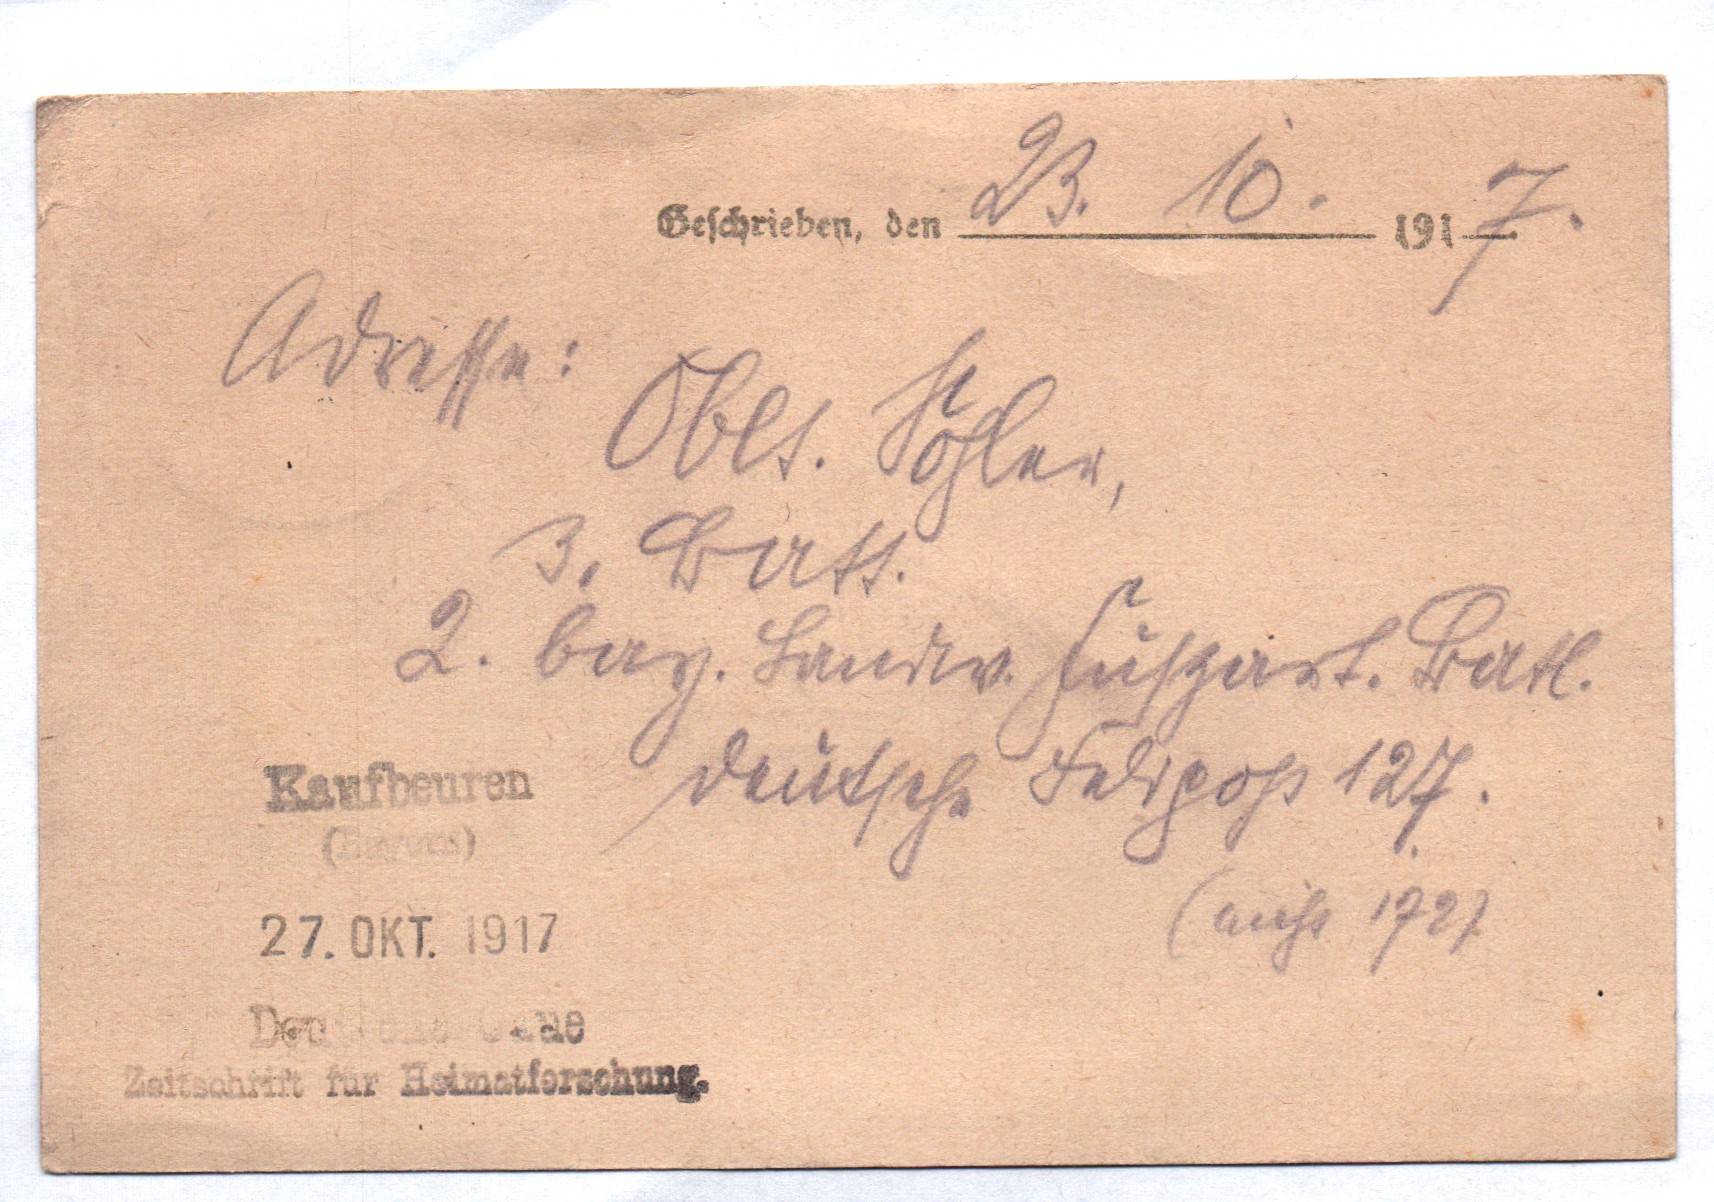 Geschrieben, den 23. 10. 1917.
Adresse:
Oblt. Föhler,
3. Batt.
2. bay. Landw. Fußart. Batl.
deutsche Feldpost 127.
(nicht 172)
Kaufbeuren
(Bayern)
27. OKT. 1917
Deutsche Gaue
Zeitschrift für Heimatforschung.